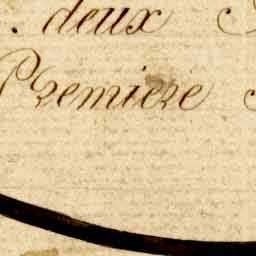 . deux
Premiere